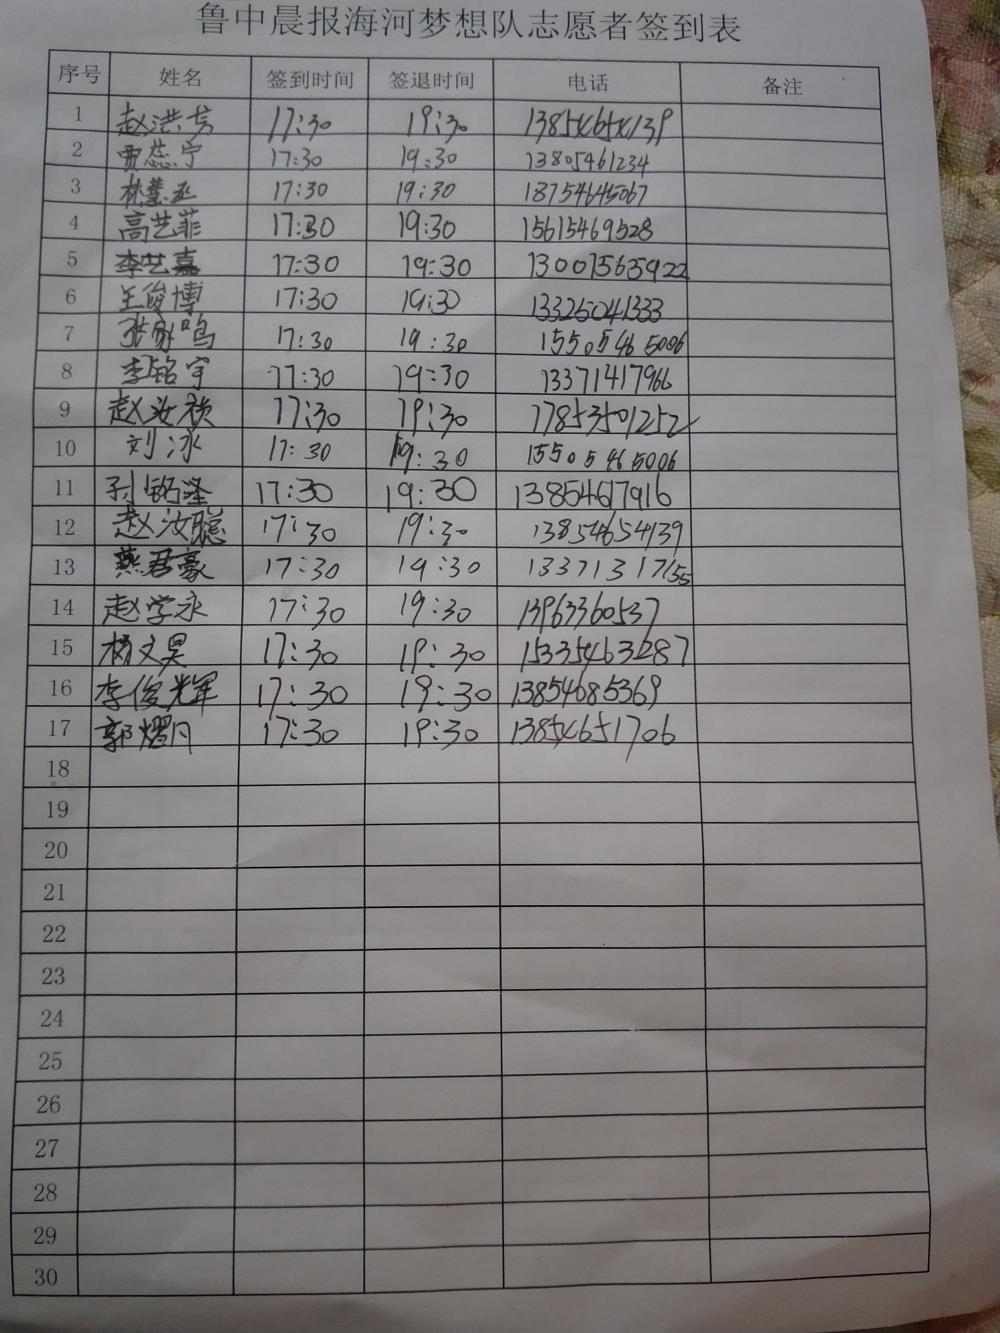 鲁中晨报海河梦想队志愿者签到表
序号 姓名 签到时间 签退时间 电话 备注
1 赵洪芳 17:30 19:30 13854654139
2 贾蕊宁 17:30 19:30 13805461234
3 林慧丞 17:30 19:30 18754645067
4 高艺菲 17:30 19:30 15615469528
5 李艺嘉 17:30 19:30 130015635922
6 王俊博 17:30 19:30 13325041333
7 张家鸣 17:30 19:30 15505465006
8 李铭宇 17:30 19:30 13371417966
9 赵汝祯 17:30 19:30 17853501252
10 刘冰 17:30 19:30 15505465006
11 孙铭泽 17:30 19:30 13854617916
12 赵汝聪 17:30 19:30 13854654139
13 燕君豪 17:30 19:30 13371317155
14 赵学永 17:30 19:30 13963360537
15 杨文昊 17:30 19:30 15335463287
16 李俊辉 17:30 19:30 13854685369
17 郭熠月 17:30 19:30 13854651706
18
19
20
21
22
23
24
25
26
27
28
29
30